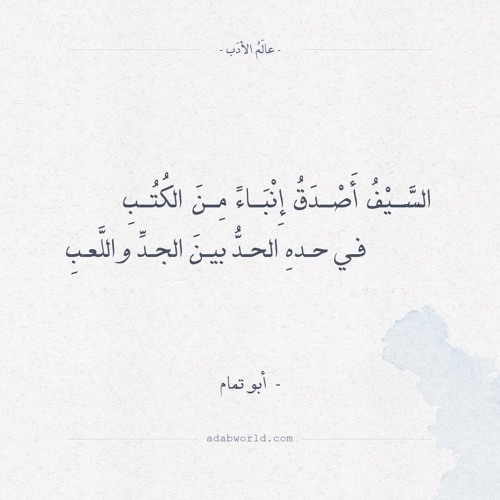 - عالَمُ الأدَب -
السَّــيْفُ أَصْــدَقُ إِنْبَــاءً مِــنَ الكُتُــبِ
فــي حــدهِ الحــدُّ بيــنَ الجــدِّ و اللَّعــبِ
- أبو تمام
adabworld.com